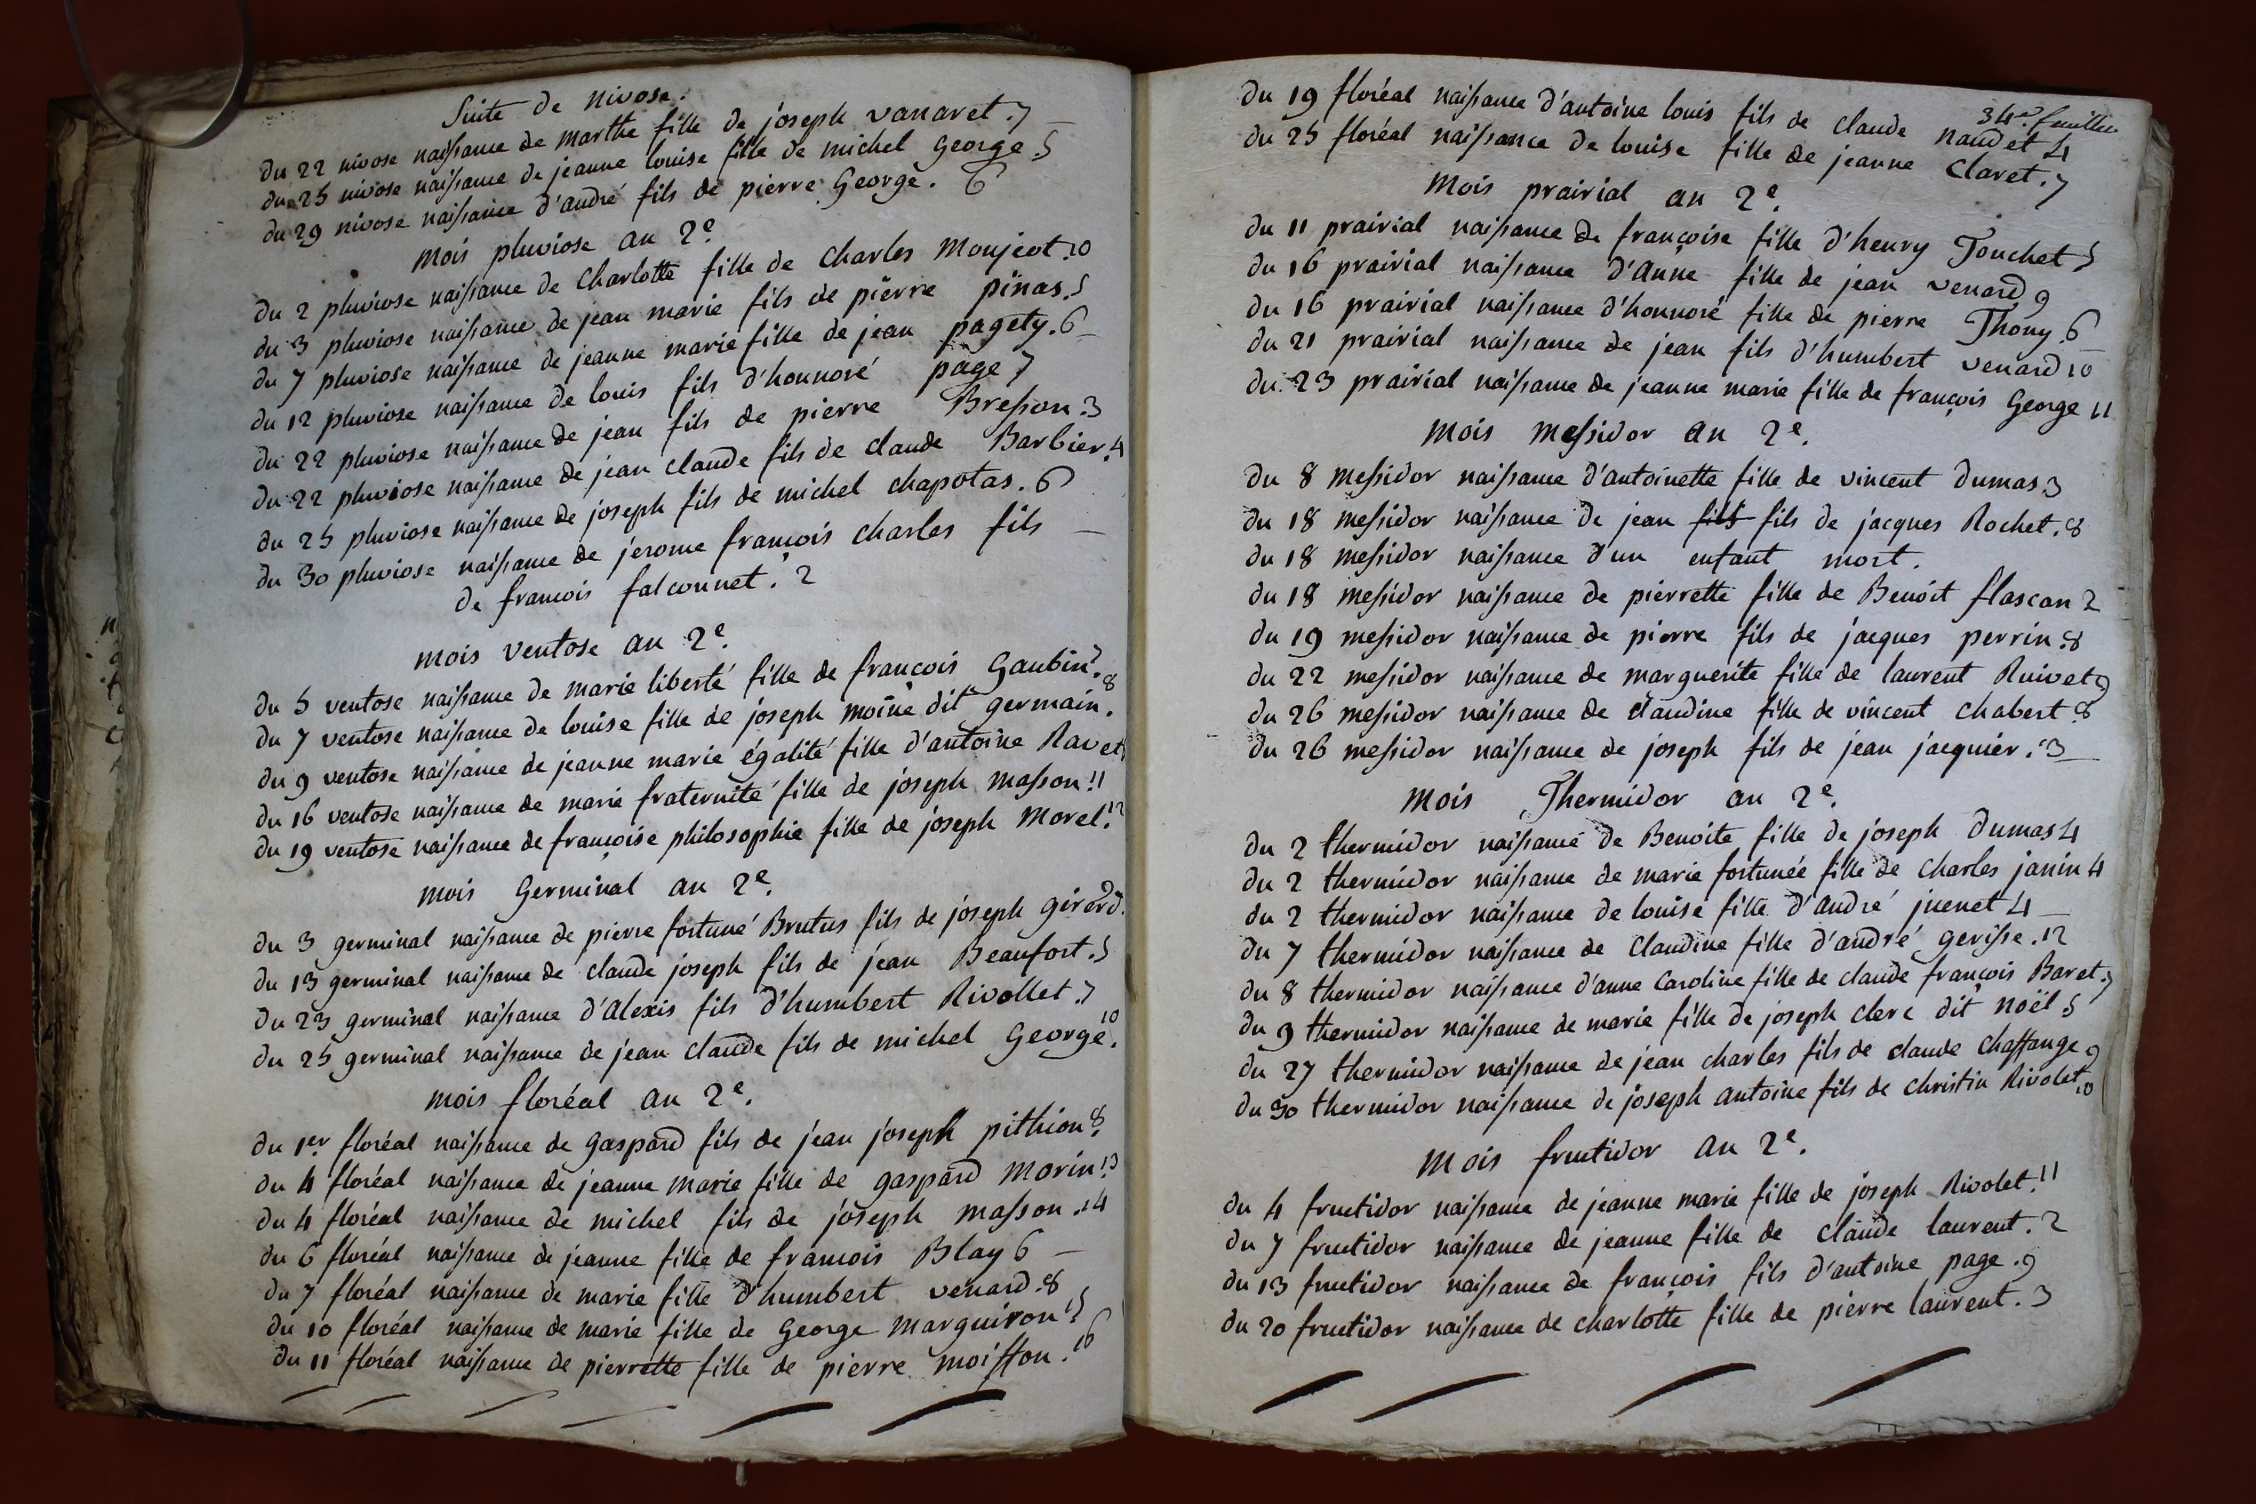 Suite de nivose.
du 22 nivose naissance de marthe fille de joseph vanaret. 7
du 25 nivose naissance de jeanne louise fille de michel George. 5
du 29 nivose naissance d'andré fils de pierre George. 6
mois pluviose an 2e.
du 2 pluviose naissance de Charlotte fille de Charles Monjeot. 10
du 3 pluviose naissance de jean marie fils de pierre pinas. 5
du 7 pluviose naissance de jeanne marie fille de jean pagety. 6
du 12 pluviose naissance de louis fils d'honnoré page 7
du 22 pluviose naissance de jean fils de pierre Bresson. 3
du 22 pluviose naissance de jean claude fils de claude Barbier. 4
du 25 pluviose naissance de joseph fils de michel chapotas. 6
du 30 pluviose naissance de jerome françois charles fils
de francois falconnet. 2
mois ventose an 2e.
du 5 ventose naissance de marie liberté fille de françois Gaubin. 7
du 7 ventose naissance de louise fille de joseph moine dit germain. 8
du 9 ventose naissance de jeanne marie égalité fille d'antoine Ravet
du 16 ventose naissance de marie fraternité fille de joseph masson. 11
du 19 ventose naissance de françoise philosophie fille de joseph Morel. 12
mois Germinal an 2e.
du 3 germinal naissance de pierre fortuné Brutus fils de joseph girerd.
du 13 germinal naissance de claude joseph fils de jean Beaufort. 5
du 23 germinal naissance d'Alexis fils d'humbert Rivollet. 7
du 25 germinal naissance de jean claude fils de michel George. 10
mois floréal an 2e.
du 1er floréal naissance de gaspard fils de jean joseph pithion 8.
du 4 floréal naissance de jeanne marie fille de gaspard morin. 13
du 4 floréal naissance de michel fils de joseph masson. 14
du 6 floréal naissance de jeanne fille de francois Blay 6
du 7 floréal naissance de marie fille d'humbert venard. 8
du 10 floréal naissance de marie fille de George marguiron 15
du 11 floréal naissance de pierrette fille de pierre moisson. 16
34e feuillet
du 19 floréal naissance d'antoine louis fils de claude naudet 4
du 25 floréal naissance de louise fille de jeanne Claret. 7
Mois prairial an 2e.
du 11 prairial naissance de françoise fille d'henry Jouchet 5
du 16 prairial naissance d'Anne fille de jean venard 9
du 16 prairial naissance d'honnoré fille de pierre Thony. 6
du 21 prairial naissance de jean fils d'humbert venard 10
du 23 prairial naissance de jeanne marie fille de françois George 11
mois messidor an 2e.
du 8 messidor naissance d'antoinette fille de vincent Dumas 3
du 18 messidor naissance de jean fils fils de jacques Rochet. 8
du 18 messidor naissance d'un enfant mort.
du 18 messidor naissance de pierrette fille de Benoit flascan 2
du 19 messidor naissance de pierre fils de jacques perrin. 8
du 22 messidor naissance de marguerite fille de laurent Ruivet 9
du 26 messidor naissance de claudine fille de vincent chabert. 8
du 26 messidor naissance de joseph fils de jean jacquier. 3
Mois Thermidor an 2e.
du 2 thermidor naissance de Benoite fille de joseph Dumas 4
du 2 thermidor naissance de marie fortunée fille de Charles janin 4
du 2 thermidor naissance de louise fille d'andré juenet 4
du 7 thermidor naissance de Claudine fille d'andré gerisse. 12
du 8 thermidor naissance d'anne Caroline fille de claude françois Baret. 7
du 9 thermidor naissance de marie fille de joseph clerc dit noël 5
du 27 thermidor naissance de jean charles fils de claude Chaffange 9
du 30 thermidor naissance de joseph antoine fils de christin Rivolet. 10
mois fructidor an 2e.
du 4 fructidor naissance de jeanne marie fille de joseph Rivolet. 11
du 7 fructidor naissance de jeanne fille de claude laurent. 2
du 13 fructidor naissance de françois fils d'antoine page. 9
du 20 fructidor naissance de charlotte fille de pierre laurent. 3